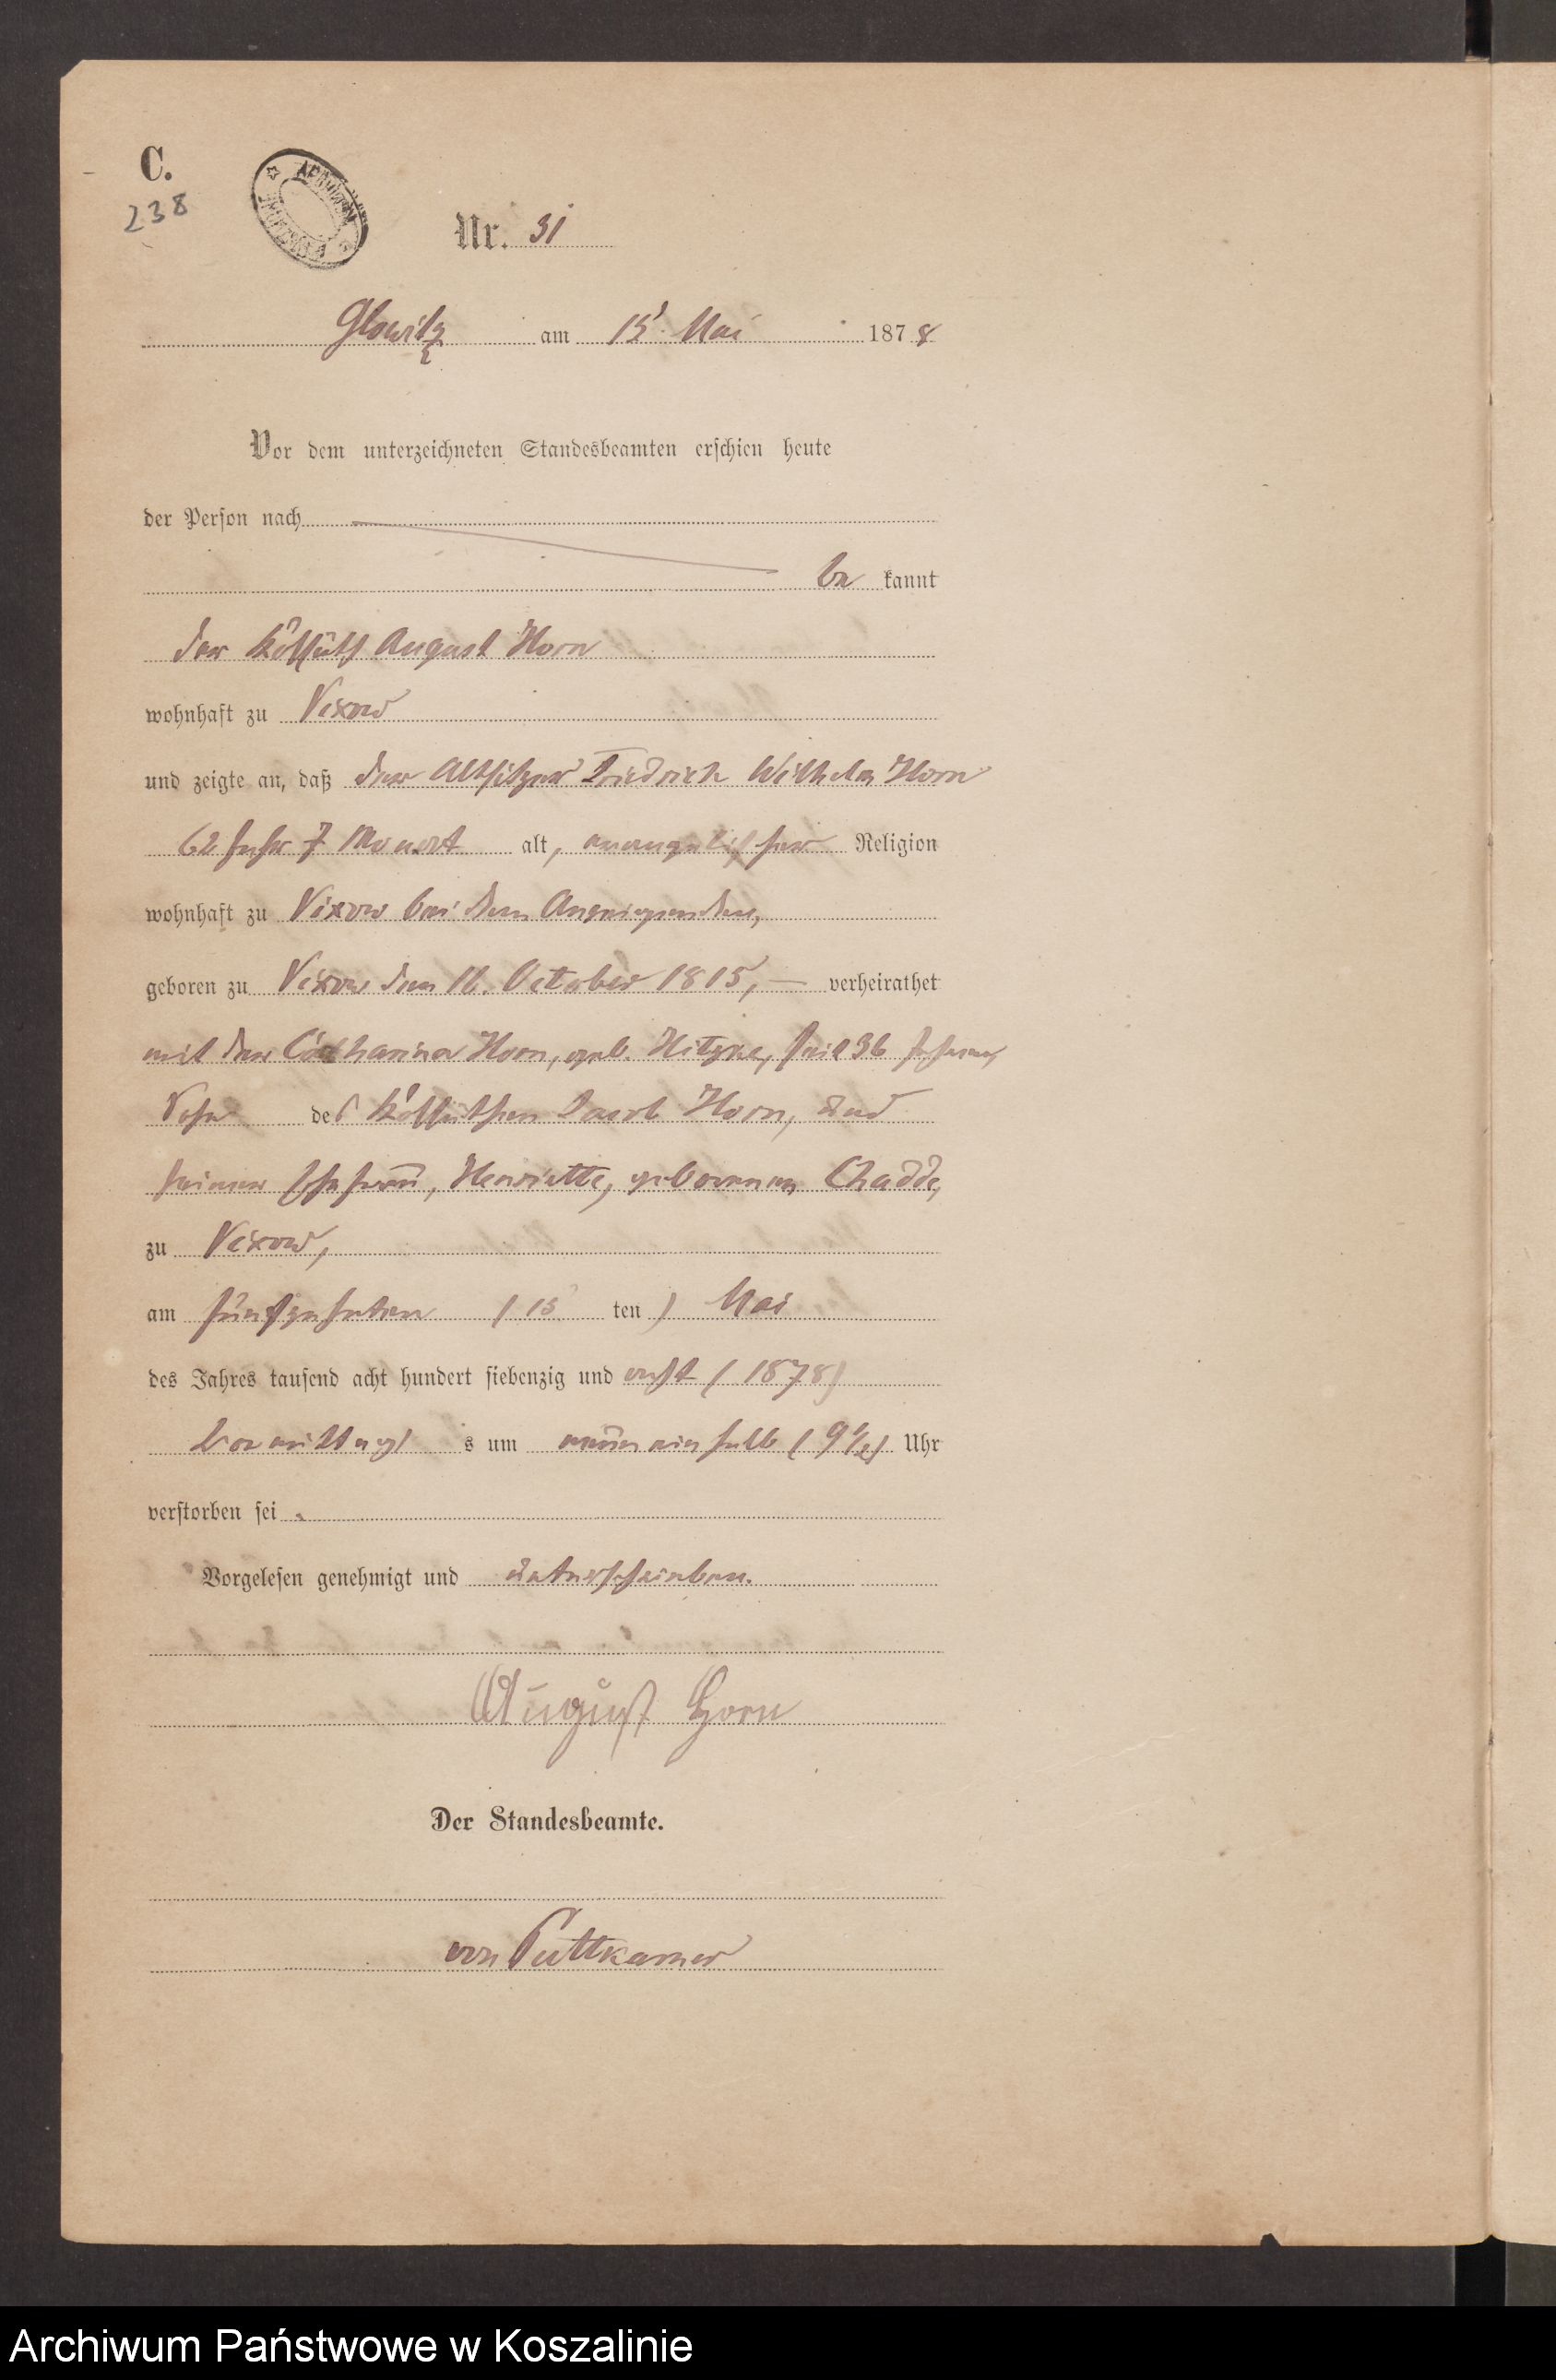 C.
238
Nr. 31
Glowitz am 15 Mai 1878
Vor dem unterzeichneten Standesbeamten erschien heute
der Person nach
be kannt
der Kossäth August Horn
wohnhaft zu Vixow
und zeigte an, daß der Altsitzer Friedrich Wilhelm Horn
62 Jahr 7 Monat alt, evangelischer Religion
wohnhaft zu Vixow bei dem Anzeigenden,
geboren zu Vixow den 16. October 1815, — verheirathet
mit der Catharina Horn, geb. Hitzke, seit 36 Jahren,
Sohn des Kossäthen Jacob Horn, und
seiner Ehefrau, Henriette, geborenen Chadde,
zu Vixow,
am fünfzehnten (15 ten) Mai
des Jahres tausend acht hundert siebenzig und acht (1878)
Vormittags um neun ein halb (9 1/2) Uhr
verstorben sei.
Vorgelesen genehmigt und unterschrieben.
August Horn
Der Standesbeamte.
von Puttkamer
Archiwum Państwowe w Koszalinie